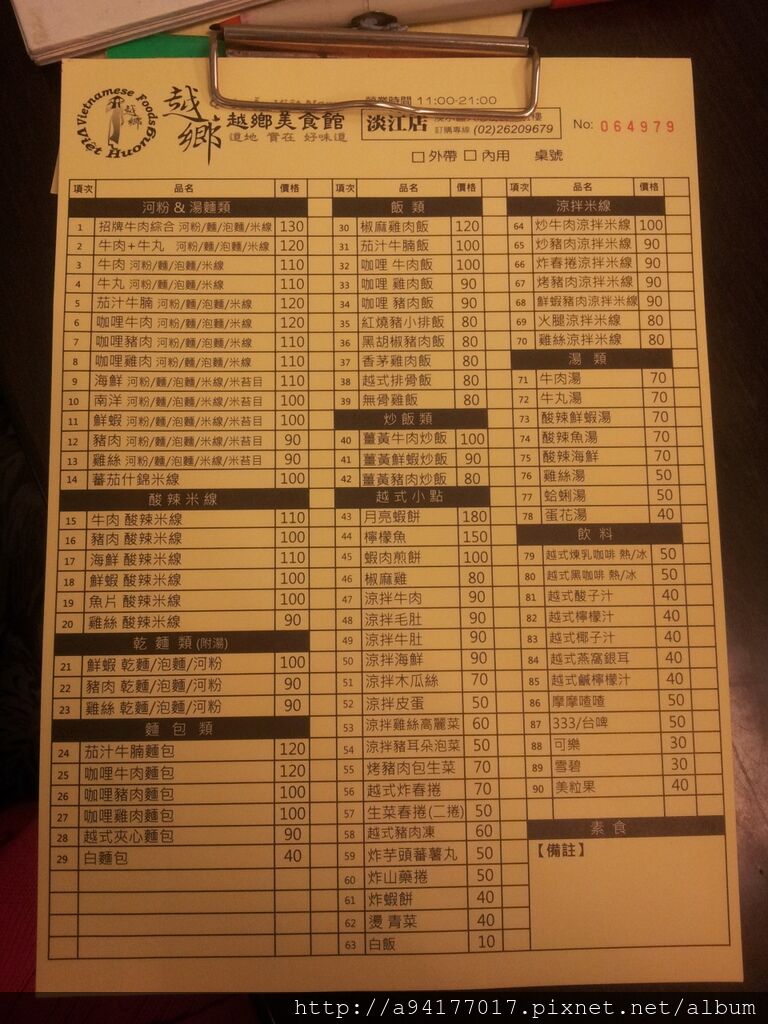 Vietnamese Foods
越鄉
Việt Huong
越鄉
越鄉美食館
道地 實在 好味道
營業時間 11:00-21:00
淡江店
訂購專線 (02)26209679
No: 064979
□外帶 □內用 桌號
項次 品名 價格
河粉&湯麵類
1 招牌牛肉綜合 河粉/麵/泡麵/米線 130
2 牛肉+牛丸 河粉/麵/泡麵/米線 120
3 牛肉 河粉/麵/泡麵/米線 110
4 牛丸 河粉/麵/泡麵/米線 110
5 茄汁牛腩 河粉/麵/泡麵/米線 120
6 咖哩牛肉 河粉/麵/泡麵/米線 120
7 咖哩豬肉 河粉/麵/泡麵/米線 110
8 咖哩雞肉 河粉/麵/泡麵/米線 110
9 海鮮 河粉/麵/泡麵/米線/米苔目 110
10 南洋 河粉/麵/泡麵/米線/米苔目 100
11 鮮蝦 河粉/麵/泡麵/米線/米苔目 100
12 豬肉 河粉/麵/泡麵/米線/米苔目 90
13 雞絲 河粉/麵/泡麵/米線/米苔目 90
14 蕃茄什錦米線 100
酸辣米線
15 牛肉 酸辣米線 110
16 豬肉 酸辣米線 100
17 海鮮 酸辣米線 110
18 鮮蝦 酸辣米線 100
19 魚片 酸辣米線 100
20 雞絲 酸辣米線 90
乾麵類(附湯)
21 鮮蝦 乾麵/泡麵/河粉 100
22 豬肉 乾麵/泡麵/河粉 90
23 雞絲 乾麵/泡麵/河粉 90
麵包類
24 茄汁牛腩麵包 120
25 咖哩牛肉麵包 120
26 咖哩豬肉麵包 100
27 咖哩雞肉麵包 100
28 越式夾心麵包 90
29 白麵包 40
項次 品名 價格
飯類
30 椒麻雞肉飯 120
31 茄汁牛腩飯 100
32 咖哩 牛肉飯 100
33 咖哩 雞肉飯 90
34 咖哩 豬肉飯 90
35 紅燒豬小排飯 80
36 黑胡椒豬肉飯 80
37 香茅雞肉飯 80
38 越式排骨飯 80
39 無骨雞飯 80
炒飯類
40 薑黃牛肉炒飯 100
41 薑黃鮮蝦炒飯 90
42 薑黃豬肉炒飯 80
越式小點
43 月亮蝦餅 180
44 檸檬魚 150
45 蝦肉煎餅 100
46 椒麻雞 80
47 涼拌牛肉 90
48 涼拌毛肚 90
49 涼拌牛肚 90
50 涼拌海鮮 90
51 涼拌木瓜絲 70
52 涼拌皮蛋 50
53 涼拌雞絲高麗菜 60
54 涼拌豬耳朵泡菜 50
55 烤豬肉包生菜 70
56 越式炸春捲 70
57 生菜春捲(二捲) 50
58 越式豬肉凍 60
59 炸芋頭蕃薯丸 50
60 炸山藥捲 50
61 炸蝦餅 40
62 燙 青菜 40
63 白飯 10
項次 品名 價格
涼拌米線
64 炒牛肉涼拌米線 100
65 炒豬肉涼拌米線 90
66 炸春捲涼拌米線 90
67 烤豬肉涼拌米線 90
68 鮮蝦豬肉涼拌米線 90
69 火腿涼拌米線 80
70 雞絲涼拌米線 80
湯類
71 牛肉湯 70
72 牛丸湯 70
73 酸辣鮮蝦湯 70
74 酸辣魚湯 70
75 酸辣海鮮 70
76 雞絲湯 50
77 蛤蜊湯 50
78 蛋花湯 40
飲料
79 越式煉乳咖啡 熱/冰 50
80 越式黑咖啡 熱/冰 50
81 越式酸子汁 40
82 越式檸檬汁 40
83 越式椰子汁 40
84 越式燕窩銀耳 40
85 越式鹹檸檬汁 40
86 摩摩喳喳 50
87 333/台啤 50
88 可樂 30
89 雪碧 30
90 美粒果 40
素食
【備註】
http://a94177017.pixnet.net/album